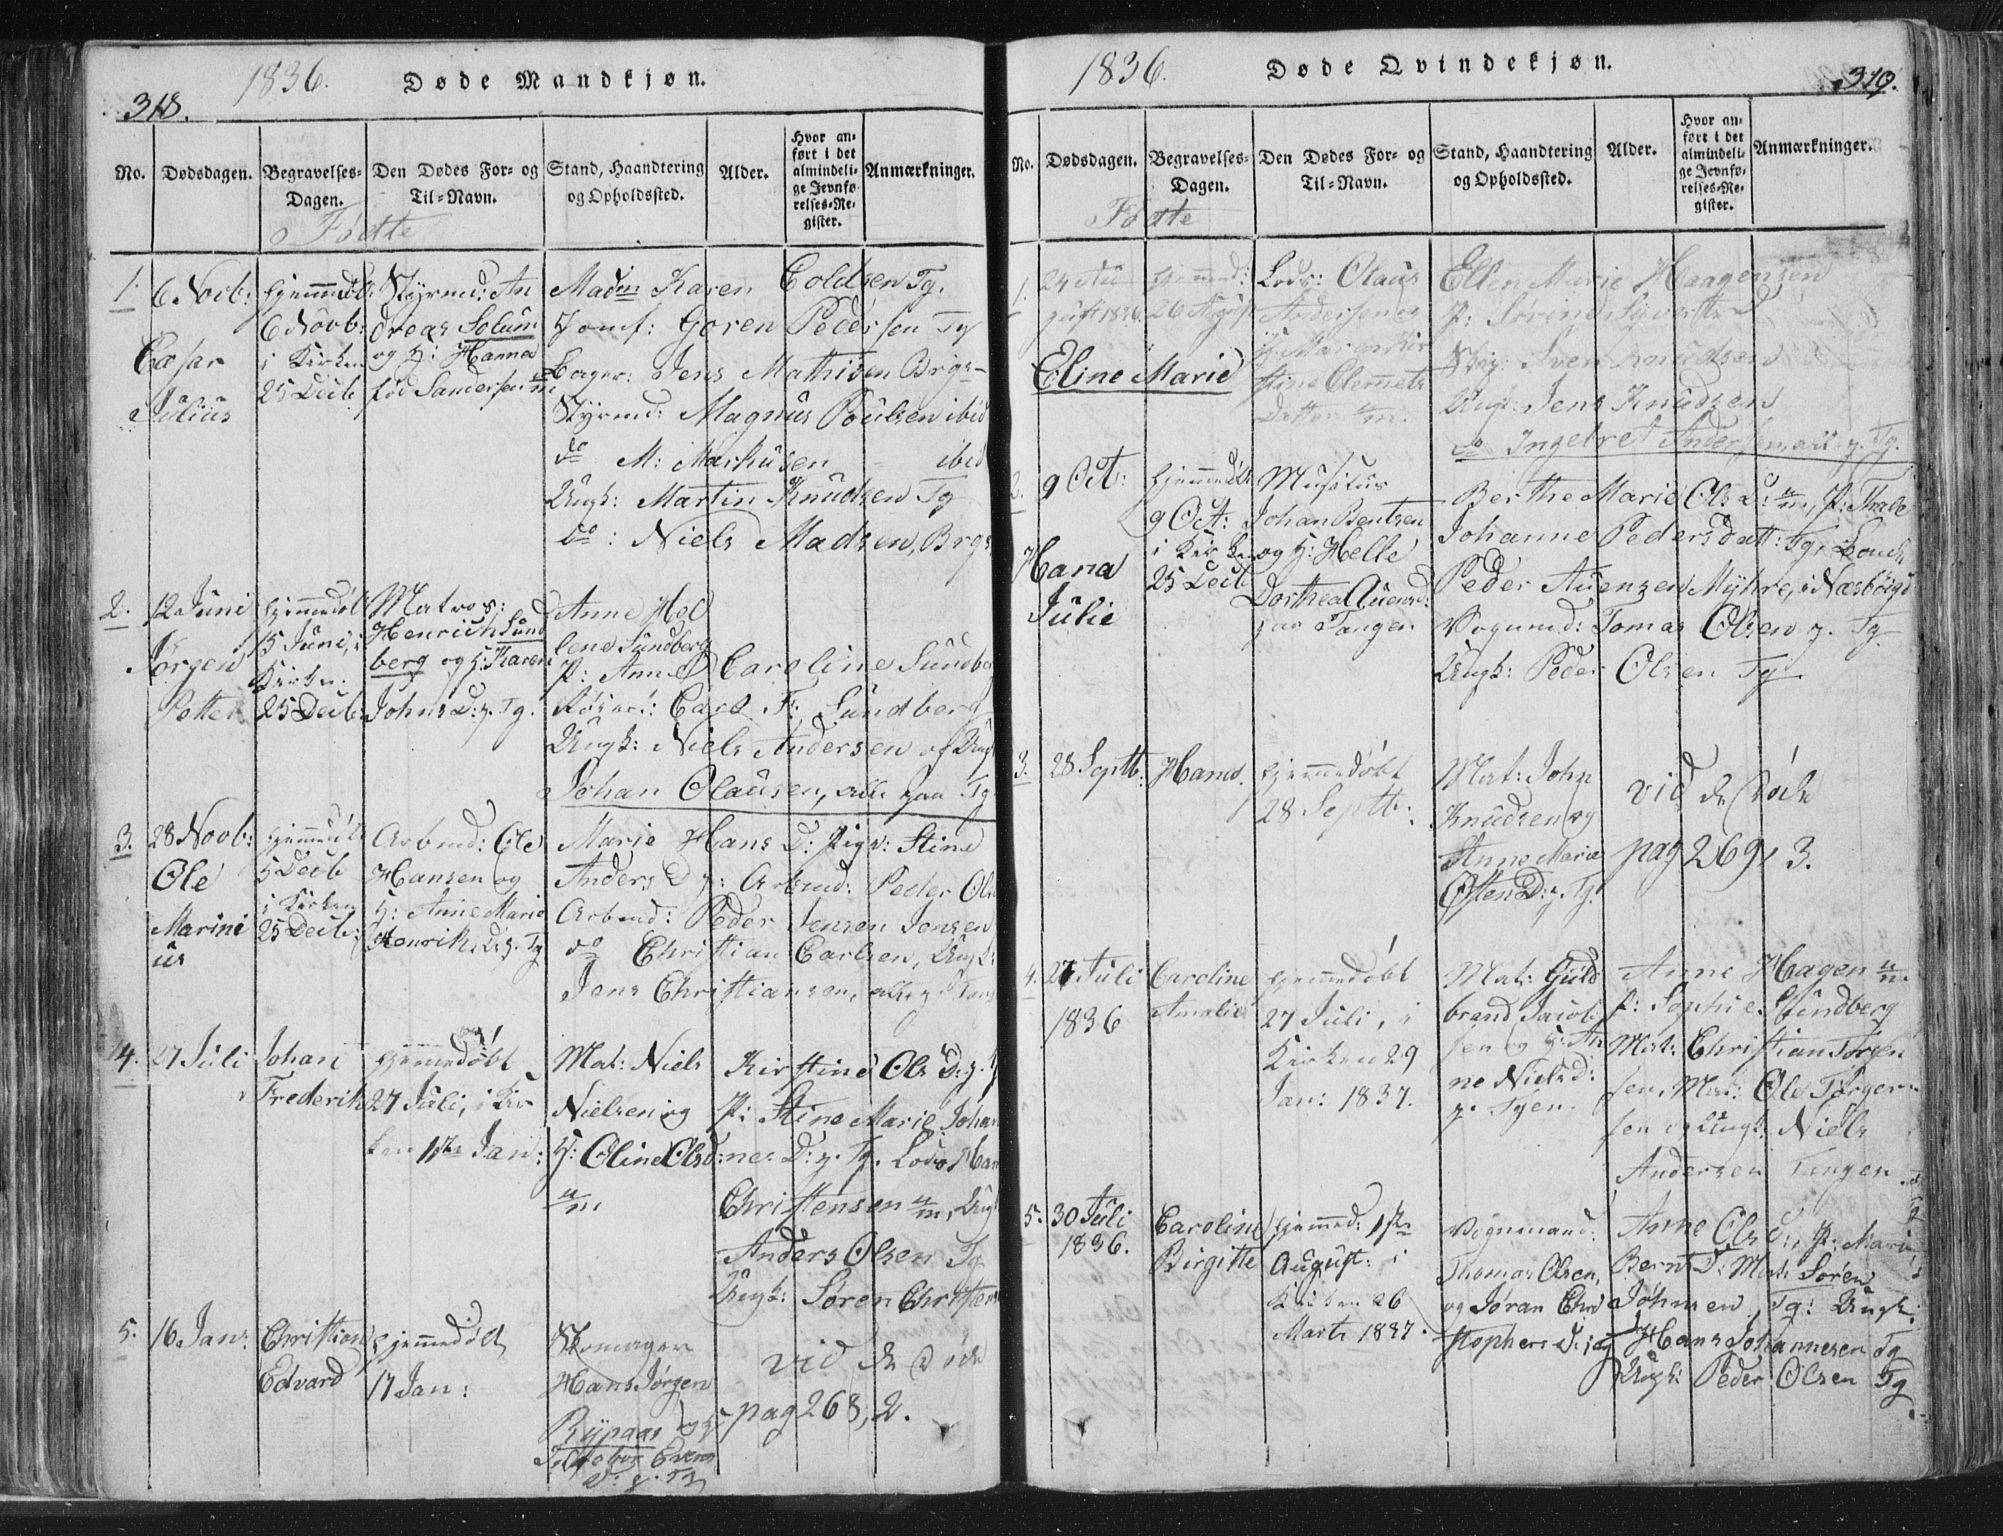 318.
1836.
Døde Mandkjøn.
No.
Dødsdagen.
Begravelses-
Dagen.
Den Dødes For- og
Til-Navn.
Stand, Haandtering
og Opholdssted.
Alder.
Hvor an-
ført i det
almindeli-
ge Jevnfø-
relses-Re-
gister.
Anmærkninger.
Fødte
1. 6 Novb:
Cæsar
Julius
hjemmedøbt
6 Novb:
i Kirken
25 Decb
Styrmd: An
dreas Solum
og H: Hanna
fød Sandersen
Madm Karen Coldsen Tg.
Jomf: Goren Pedersen Tg
Jens Mathisen Brgs
Styrmd: Magnus Poulsen ibid
do M: Markusen ibid
Ungk: Martin Knudsen Tg
do: Niels Madsen, Brgs
2. 12 Juni
Jørgen
Petter
hjemmedøbt
15 Juni, i
Kirken
25 Decb:
Matros:
Henrich Sund
berg og H: Karen
Johns D: p. Tg.
Anne Hel
lene Sundberg
P: Anne Caroline Sundberg
Carl F: Sundberg
Ungk: Niels Andersen og Ungk
Johan Olausen, alle paa Tg.
3. 28 Novb:
Ole
Marini
us
hjemmedøbt
5 Decb
i Kirken
25 Decb:
Arbmd: Ole
Hansen og
H: Anne Marie
Henriks D: p. Tg
Marie Hans D: Pige: Stine
Anders D p: Arbmd: Peder Ols
Arbmd: Peder Jensen Jensen
do Christian Carlsen, Ungk:
Jens Christiansen, alle p. Tang
4. 27 Juli
Johan
Frederik
hjemmedøbt
27 Juli, i Kir
ken 1ste Jan:
Mat: Niels
Nielsen og
H: Oline Olsd:
Kirstine Ols D: p.
P: Stine Marie Johan
nes D: p. Tg. Lods Han
Christensen Ungk
Anders Olsen Tg
Ungk: Søren Christens
5. 16 Jan:
Christian
Edvard
hjemmedøbt
17 Jan:
Skomager
Hans Jørgen
Rypaas og H:
D: p. Tg
vid de Døde
pag 268, 2.
1836.
Døde Qvindekjøn.
319.
No.
Dødsdagen.
Begravelses-
Dagen.
Den Dødes For- og
Til-Navn.
Stand, Haandtering
og Opholdssted.
Alder.
Hvor an-
ført i det
almindeli-
ge Jevnfø-
relses-Re-
gister.
Anmærkninger.
Fødte
1. 24 Au
gust 1836
Eline Marie
hjemmed:
26 August
Lods: Olaus
Andersen og
H: Maren Kir
stine Clemets
Datter
Ellen Marie Haagensen
P: Sivertse D
Iver Knudsen
Ungk: Jens Knudsen
do Ingebret Andersen, alle p. Tg.
2. 9 Oct:
Hana
Julie
hjemmedøbt
9 Oct:
i Kirken
25 Decb
Musicus
Johan Bentsen
og H: Helle
Dorthea Auensd:
paa Tangen
Berthe Marie Ols D: P:
Johanne Pedersdatt: Tg,
Peder Auensen Myhre, i Næsbøigd
Vognmd: Tomas Olsen p. Tg
Ungk: Peder Olsen Tg.
3. 28 Septb:
Hana
hjemmedøbt
28 Septb:
Mat: John
Knudsen og
Anne Marie
Osten D: p. Tg.
vid de Døde
pag 269, 3.
4. 27 Juli
1836
Caroline
Amalie
hjemmedøbt
27 Juli, i
Kirken 29
Jan: 1837.
Mat: Guld
brand Jacob
sen og H: An
ne Nielsd:
p. Tgen.
Anne Hagen
P: Sophie Sundberg
Mat: Christian Tørgen
sen, Mat: Ole Tørger
sen og Ungk: Niels
Andersen Tangen
5. 30 Juli
1836.
Caroline
Birgitte
hjemmed: 1ste
August: i
Kirken 26
Marts 1837.
Vognmand:
Thomas Olsen,
og Jøran Chri
stophers D: Tg
Anne Ols D:, P: Marie
Bernt D: Mat: Søren
Johnsen, Tg: Ungk:
Hans Johannesen Tg
Ungk: Peder Olsen Tg